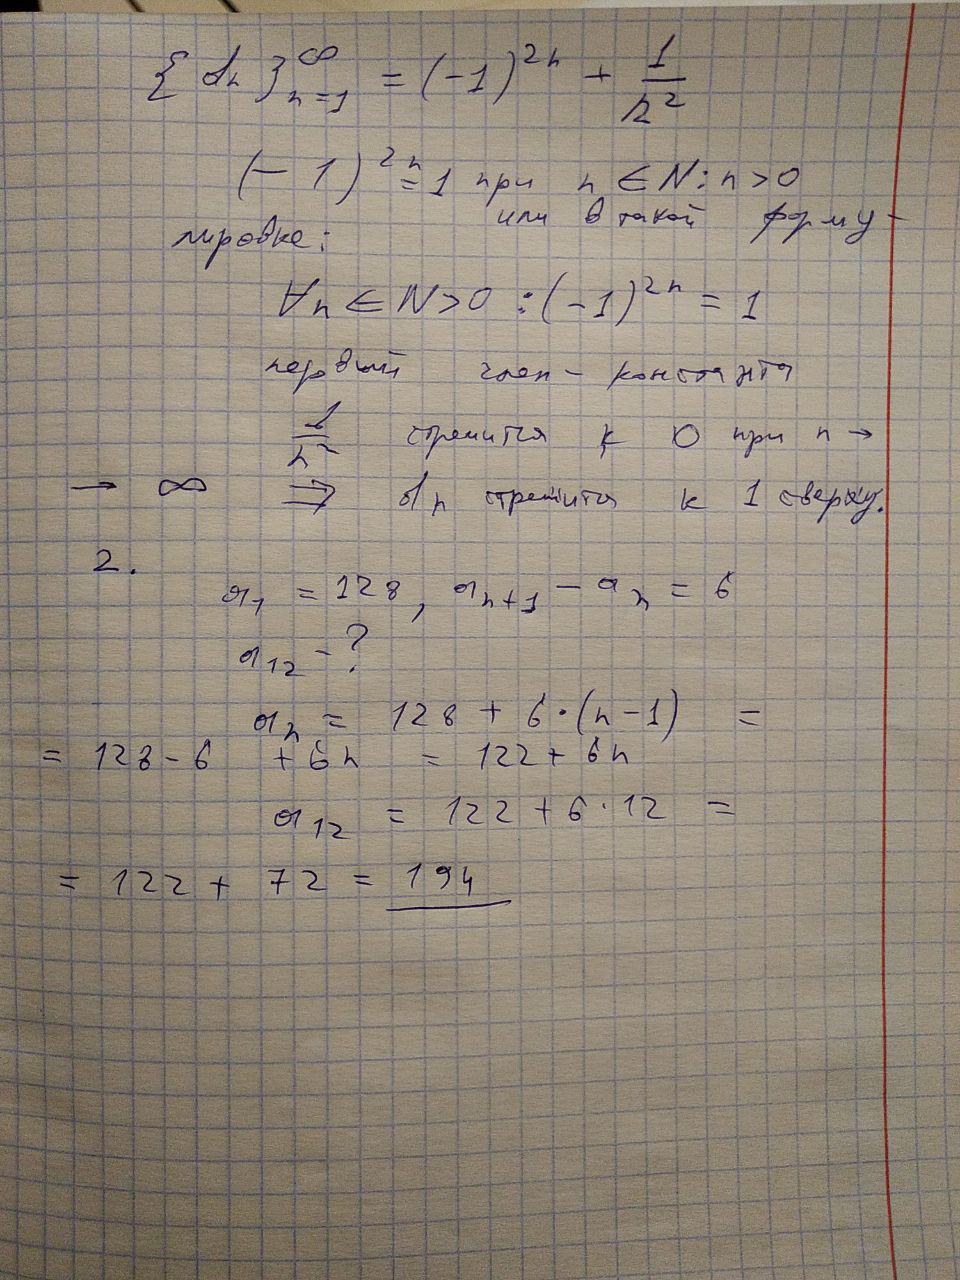 {αₙ}ₙ₌₁^∞ = (-1)²ⁿ + 1/n²
(-1)²ⁿ = 1 при n ∈ N : n > 0
или в такой форму-
лировке:
∀n ∈ N > 0 : (-1)²ⁿ = 1
первый член - константа
1/n² стремится к 0 при n →
→ ∞ ⇒ αₙ стремится к 1 сверху.
2.
a₁ = 128, aₙ₊₁ - aₙ = 6
a₁₂ - ?
aₙ = 128 + 6·(n-1) =
= 128 - 6 + 6n = 122 + 6n
a₁₂ = 122 + 6·12 =
= 122 + 72 = 194